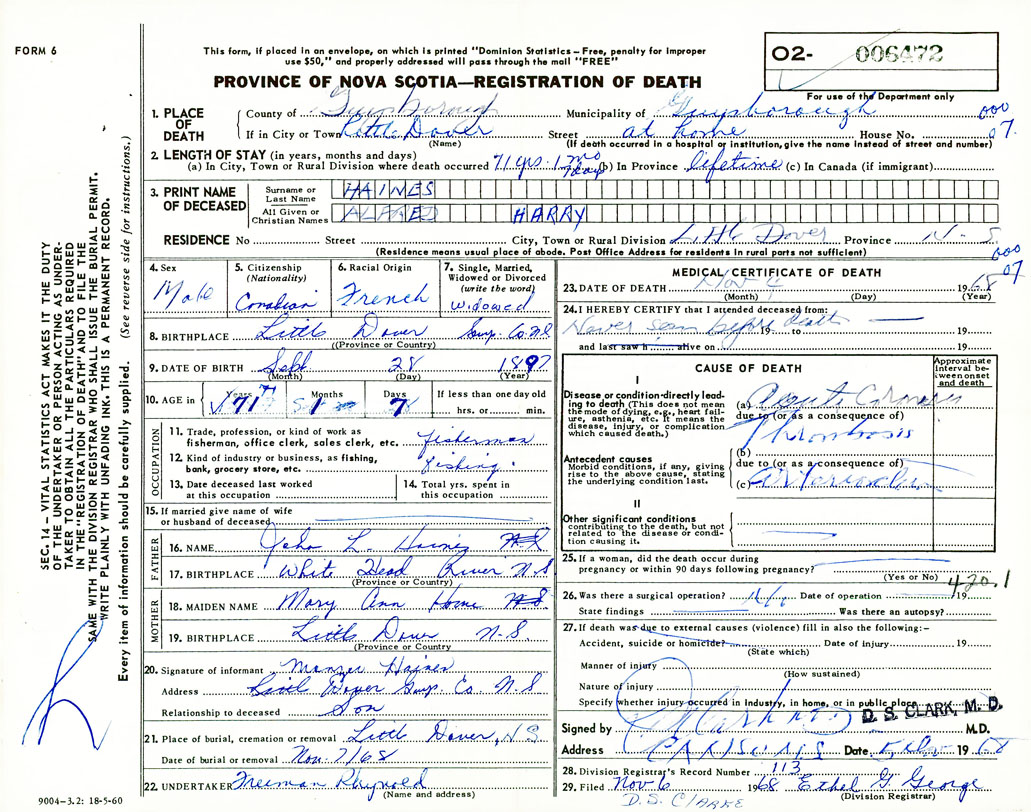 FORM 6
This form, if placed in an envelope, on which is printed "Dominion Statistics – Free, penalty for improper
use $50," and properly addressed will pass through the mail "FREE"
PROVINCE OF NOVA SCOTIA—REGISTRATION OF DEATH
O2- 006472
For use of the Department only
1. PLACE OF DEATH
County of Guysborough Municipality of Guysborough 000
If in City or Town Little Dover Street at home House No. 07.
(Name) (If death occurred in a hospital or institution, give the name instead of street and number)
2. LENGTH OF STAY (in years, months and days)
(a) In City, Town or Rural Division where death occurred 71 yrs. 1 mo 7 days (b) In Province lifetime (c) In Canada (if immigrant)
3. PRINT NAME OF DECEASED
Surname or Last Name HAINES
All Given or Christian Names ALFRED HARRY
RESIDENCE No Street City, Town or Rural Division Little Dover Province N-S
(Residence means usual place of abode. Post Office Address for residents in rural parts not sufficient) 000
07
4. Sex Male
5. Citizenship (Nationality) Canadian
6. Racial Origin French
7. Single, Married, Widowed or Divorced (write the word) Widowed
8. BIRTHPLACE Little Dover Guy. Co N.S
(Province or Country)
9. DATE OF BIRTH Sept 28 1897
(Month) (Day) (Year)
10. AGE in Years 71 Months 1 Days 7 If less than one day old
hrs. or min.
OCCUPATION
11. Trade, profession, or kind of work as
fisherman, office clerk, sales clerk, etc. fisherman
12. Kind of industry or business, as fishing,
bank, grocery store, etc. fishing.
13. Date deceased last worked
at this occupation
14. Total yrs. spent in
this occupation
15. If married give name of wife
or husband of deceased
FATHER
16. NAME John L. Haines N.S
17. BIRTHPLACE White Head River N S
(Province or Country)
MOTHER
18. MAIDEN NAME Mary Ann Horne N.S.
19. BIRTHPLACE Little Dover N-S
(Province or Country
20. Signature of informant Haines
Address Little Dover Guy. Co. N.S
Relationship to deceased Son
21. Place of burial, cremation or removal Little Dover, N S
Date of burial or removal Nov. 7/68
22. UNDERTAKER Freeman
(Name and address)
9004-3.2: 18-5-60
MEDICAL CERTIFICATE OF DEATH
23. DATE OF DEATH Nov 4 1968
(Month) (Day) (Year)
24. I HEREBY CERTIFY that I attended deceased from:
Never seen before death 19 to 19
and last saw h alive on 19
CAUSE OF DEATH
Approximate interval between onset and death
I
Disease or condition directly leading to death (This does not mean the mode of dying, e.g., heart failure, asthenia, etc. It means the disease, injury, or complication which caused death.)
(a) Acute Coronary
due to (or as a consequence of)
Thrombosis
(b)
Antecedent causes
Morbid conditions, if any, giving rise to the above cause, stating the underlying condition last.
due to (or as a consequence of)
(c)
II
Other significant conditions
contributing to the death, but not related to the disease or condition causing it.
25. If a woman, did the death occur during
pregnancy or within 90 days following pregnancy?
(Yes or No) 420.1
26. Was there a surgical operation? No Date of operation 19
State findings Was there an autopsy?
27. If death was due to external causes (violence) fill in also the following:–
Accident, suicide or homicide? Date of injury 19
(State which)
Manner of injury
(How sustained)
Nature of injury
Specify whether injury occurred in Industry, in home, or in public place
D. S. CLARK, M. D.
Signed by M.D.
Address Canso N.S Date 5 Nov 1968
28. Division Registrar's Record Number 113
29. Filed Nov 6 1968 Ethel G. George
(Division Registrar)
D.S. CLARKE
SEC. 14 – VITAL STATISTICS ACT MAKES IT THE DUTY
OF THE UNDERTAKER OR PERSON ACTING AS UNDER-
TAKER TO OBTAIN ALL THE PARTICULARS REQUIRED
IN THE "REGISTRATION OF DEATH" AND TO FILE THE
SAME WITH THE DIVISION REGISTRAR WHO SHALL ISSUE THE BURIAL PERMIT.
WRITE PLAINLY WITH UNFADING INK. THIS IS A PERMANENT RECORD.
Every item of information should be carefully supplied. (See reverse side for instructions.)